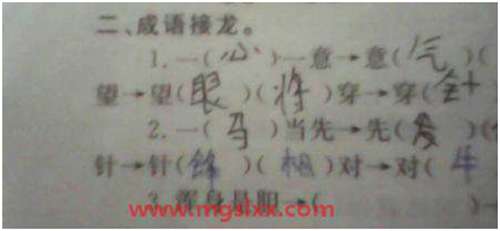 二、成语接龙。
1. 一(心)一意→意(气)(
望→望(眼)(将)穿→穿(针
2. 一(马)当先→先(发)(
针→针(锋)(相)对→对(牛
3. 浑身是胆→( )
www.mgslxx.com